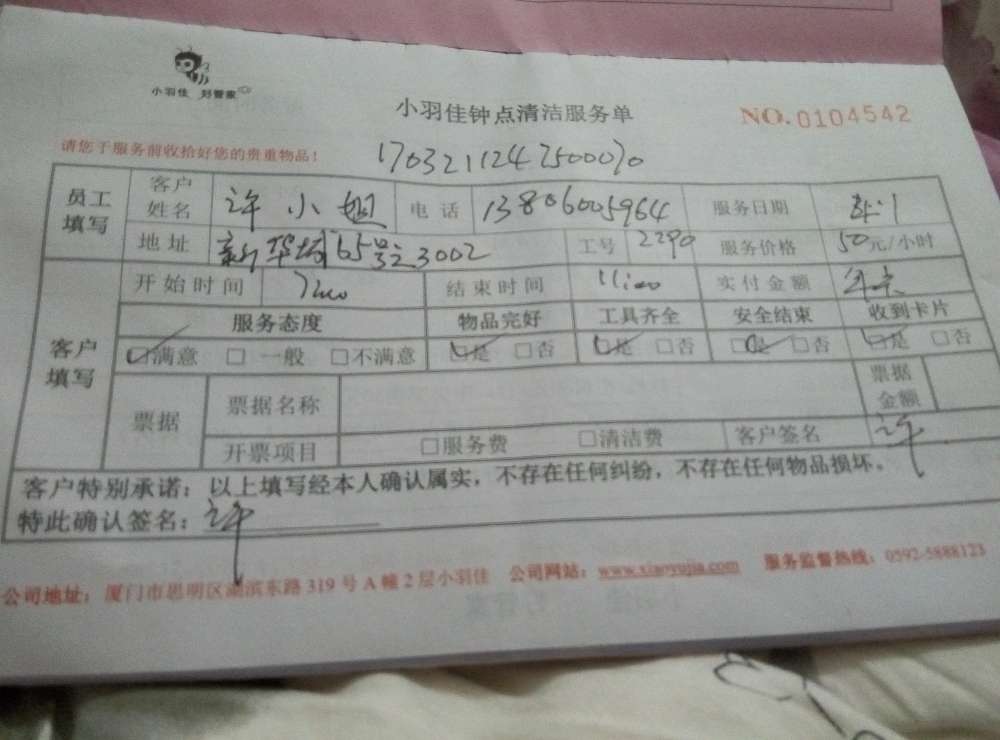 小羽佳 好管家
小羽佳钟点清洁服务单
NO.0104542
请您于服务前收拾好您的贵重物品！
员工填写 客户姓名 许小姐 电话 13806005964 服务日期
地址 新华城65号之3002 工号 2290 服务价格 50元/小时
客户填写 开始时间 结束时间 11:00 实付金额 年卡
服务态度 物品完好 工具齐全 安全结束 收到卡片
☑满意 □一般 □不满意 ☑是 □否 ☑是 □否 ☑是 □否 ☑是 □否
票据 票据名称 票据金额
开票项目 □服务费 □清洁费 客户签名 许
客户特别承诺：以上填写经本人确认属实，不存在任何纠纷，不存在任何物品损坏。
特此确认签名：许
公司地址：厦门市思明区湖滨东路319号A幢2层小羽佳 公司网站：www.xiaoyujia.com 服务监督热线：0592-5888123